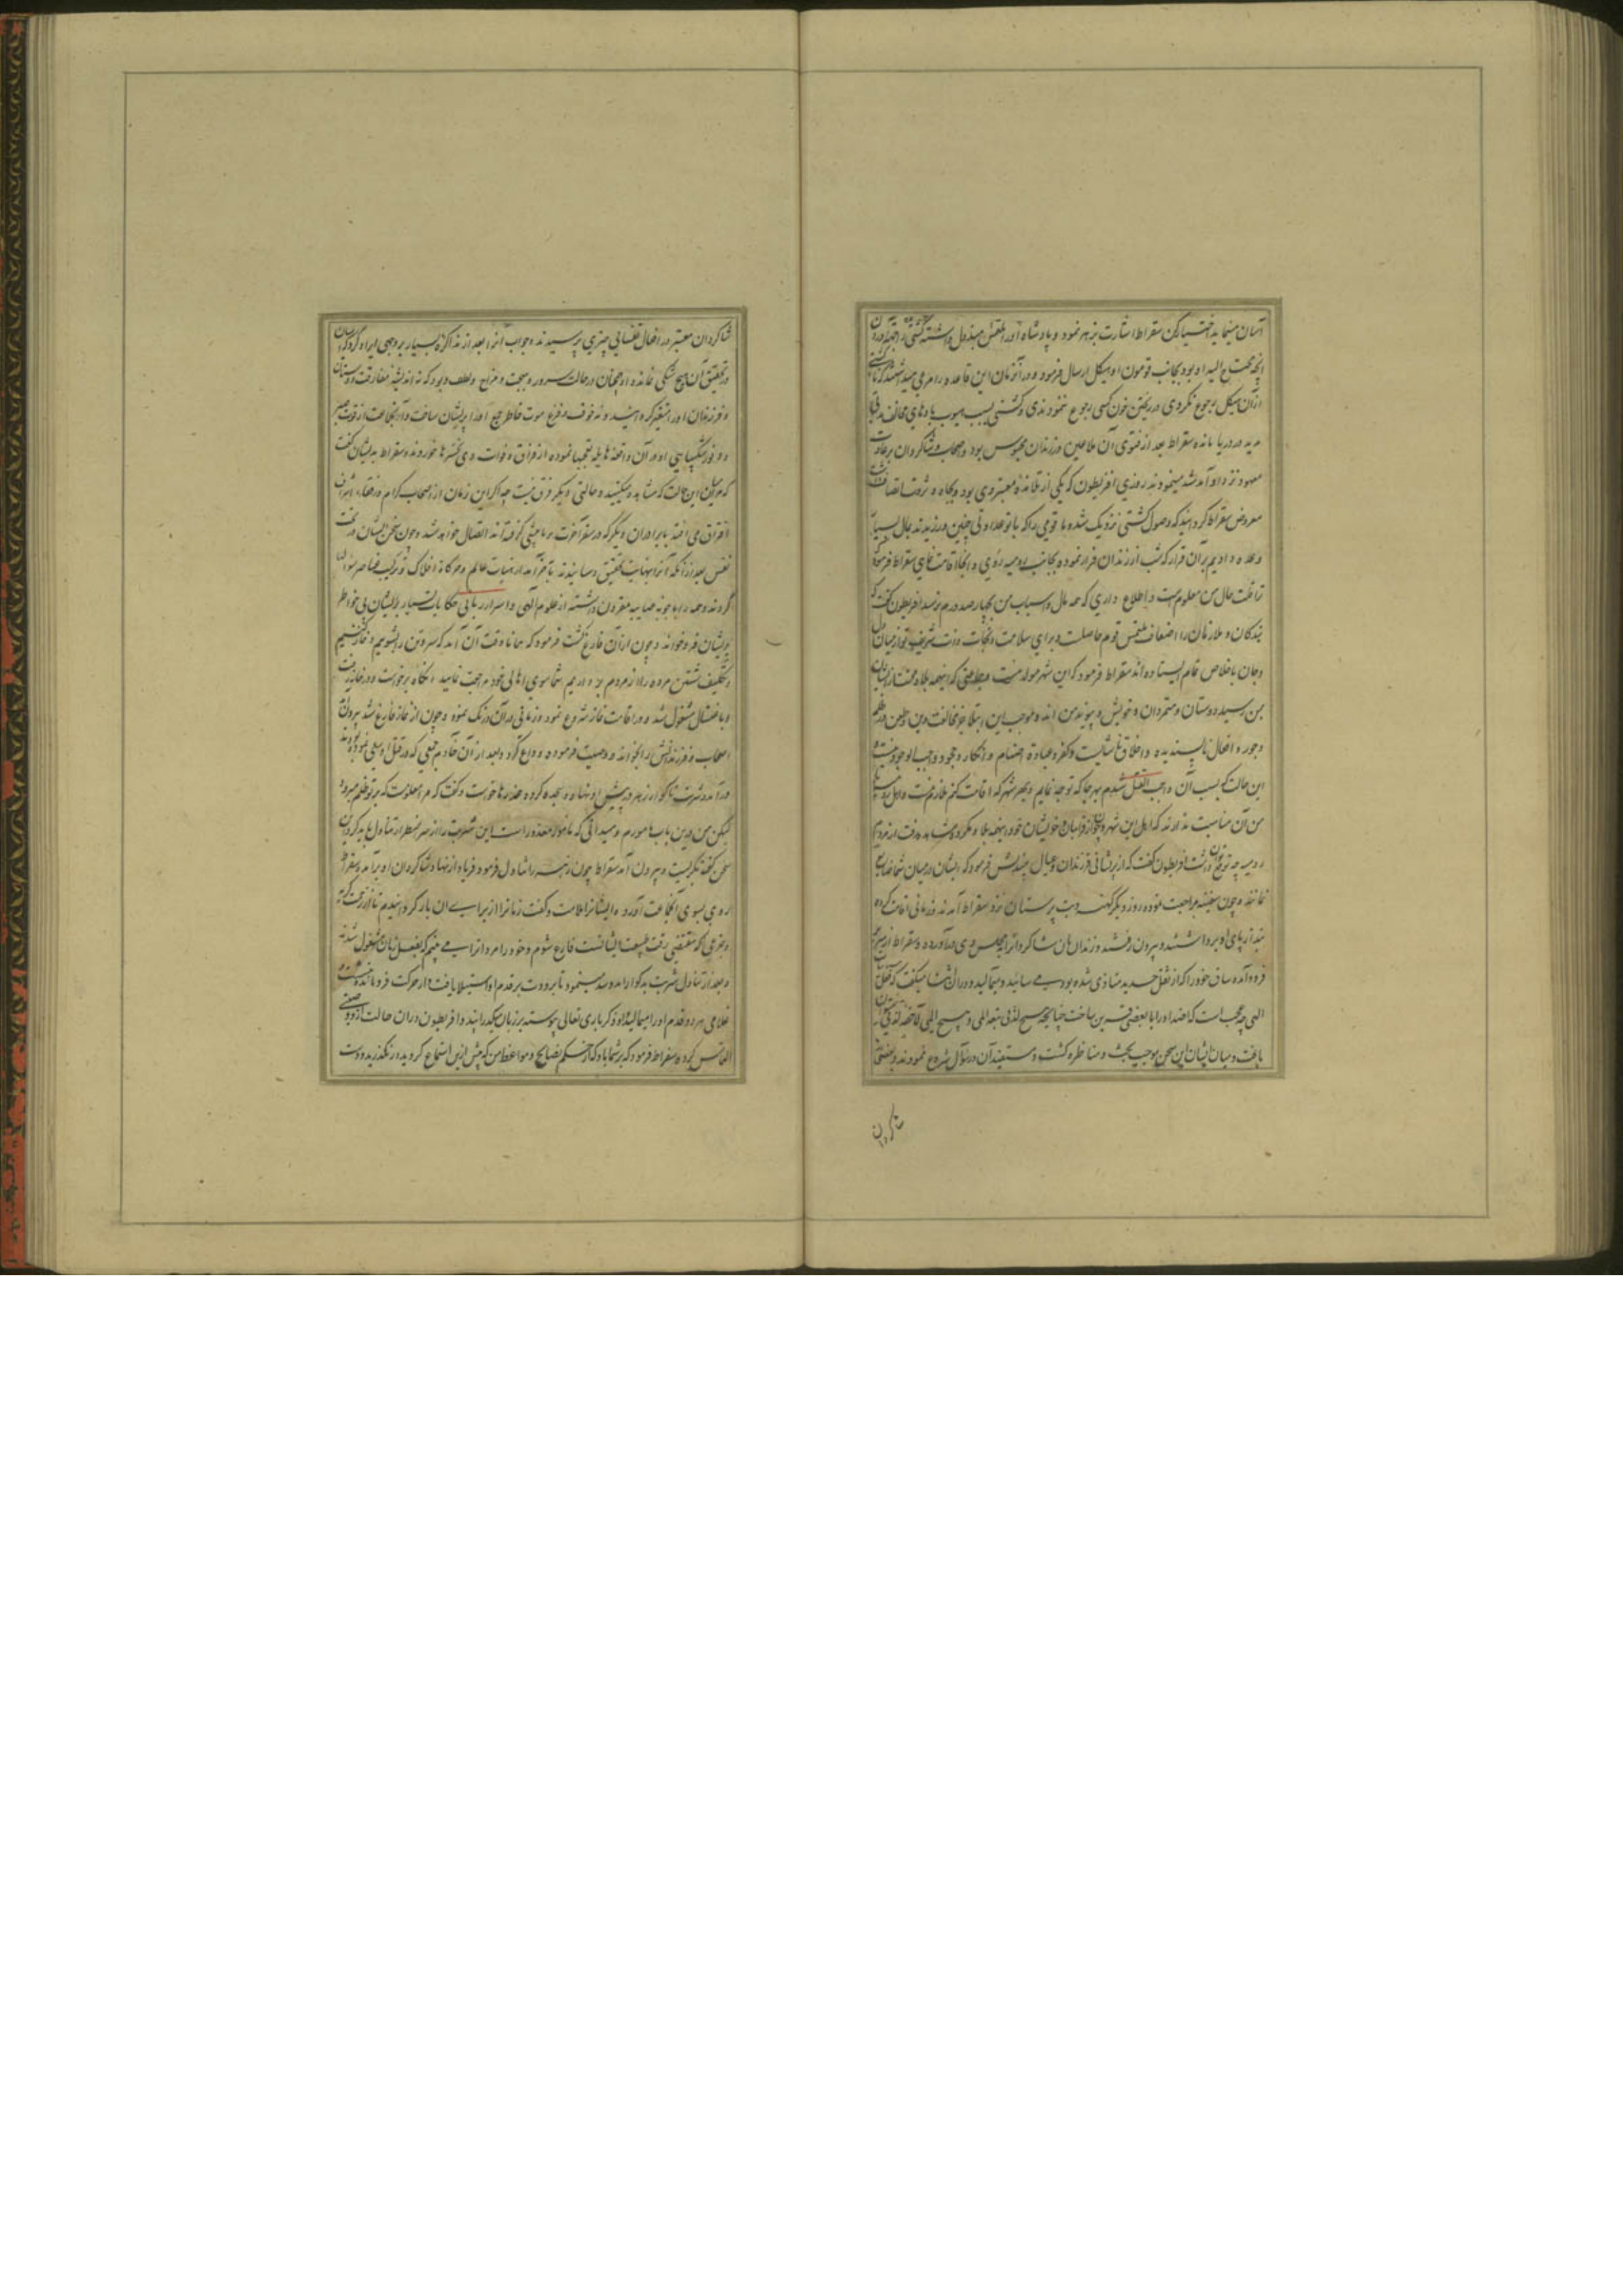 آسان مینماید اختیار کن سقراط اشارت بزهر نمود و پادشاه اورا ملتمس مبذول داشته
انچه محتاج الیه او بود بجانب قومون او هیکل ارسال فرمود و در آنزمان این قاعده را مرعی میداشتند که تا کشتی
ازان هیکل رجوع نکردی در ریختن خون کسی رجوع ننمودندی و کشتی بسبب هبوب بادهای مخالف
مدید در دریا مانده سقراط بعد از فتوی آن ملاعین در زندان محبوس بود و اصحاب و شاگردان بر عادت
معهود نزد او آمد شد مینمودند روزی افریطون که یکی از تلامذه معتبر وی بود و بجاه و ثروت اتصاف داشت
معروض سقراط گردانید که وصول کشتی نزدیک شده ما قومی را که با تو عداوتی چنین ورزیدند بمال بسیار
وعده دادیم بر آن قرار که شب از زندان فرار نموده بجانب رومیه روی و انجا اقامت نمای سقراط فرمود که
ترا قلت حال من معلوم است و اطلاع داری که همه مال و اسباب من بچهارصد درم نرسد افریطون گفت که
بندگان و ملازمان را اضعاف ملتمس قوم حاصلست و برای سلامت و نجات ذات شریف تو از میان دل
و جان باخلاص تمام ایستاده اند سقراط فرمود که این شهر مولد منست و جماعتی که اینهمه بلا و محنت از ایشان
بمن رسید دوستان و متمردان و خویش و پیوند من اند و موجب این ابتلا جز مخالفت دین و طعن در ظلم
و جور و افعال ناپسندیده و اخلاق ناشایست و کفر و عبادة اصنام و انکار وجود واجب الوجود نیست و
این حالت که بسبب آن واجب القتل شدم بهر جا که توجه نمایم و بهر شهر که اقامت کنم ملازم منست و اهل رومیه با
من آن مناسبت ندارند که اهل این شهر و چون از قرابتان و خویشان خود اینهمه بلا و مکروه مشاهده رفت از مردم
رومیه چه توقع توان داشت افریطون گفت که از پریشانی فرزندان و عیال بیندیش فرمود که ایشان در میان شما ضایع
نمانند و چون سفینه مراجعت نموده روز دیگر کهنه و بت پرستان نزد سقراط آمدند و زمانی اقامت کرده
بند از پای او برداشتند و بیرون رفتند و زندان بان شاگردانرا بمجلس وی درآورده و سقراط از سریر
فرود آمده ساق خود را که از ثقل حدید متاذی شده بود می سائید و میمالید و دران اثنا میگفت که
الهی چه عجب است که اضداد را با بعضی قرین ساخت چنانچه هیچ لذتی
یافت و میان ایشان این سخن موجب بحث و مناظره گشت و مستفیدان در سؤال شروع نمودند و بعضی از
شاگردان
شاگردان معتبر در افعال نفسانی چیزی پرسیدند و جواب آنرا بعد از مذاکره بسیار بر وجهی ایراد کرد که
در تحقیق آن هیچ شکی نماند و او همچنان در حالت سرور و بهجت و مزاح و لطف دیود که نه اندیشه مفارقت دوستان
و فرزندان او را متغیر گردانید و نه خوف و فزع موت خاطر جمع او را پریشان ساخت و آن جماعت از قوت صبر
و وفور شکیبایی او در آن واقعه هایله تعجبها نموده از فراق و فوات وی تحسرها خوردند و سقراط بدیشان گفت
که میان این حالت که مشاهده میکنید و حالتی دیگر فرق نیست چه اگر این زمان از اصحاب کرام و رفقاء اشراف
افتراق می افتد با برادران دیگر که در سفر آخرت بر ما پیشی گرفته اند اتصال خواهد شد و چون سخن ایشان در بحث
نفس بعد از آنکه آنرا بنهایت تحقیق رسانیدند بآخر آمد از هیئات عالم و حرکات افلاک و ترکیب عناصر سؤالها
کردند و همه را باجوبه صایبه مقرون داشته از علوم الهی و اسرار ربانی حکایات بسیار بر ایشان
بر ایشان فرو خواند و چون از آن فارغ گشت فرمود که همانا وقت آن آمد که سر و تن را بشوییم و نماز کنیم
و تکلیف شستن مرده را از مردم برداریم شما سوی اهالی خود مراجعت نمایید انگاه برخواست و در خانه رفت
و باغتسال مشغول شد و در اقامت نماز شروع نمود و زمانی در آن درنگ نمود و چون از نماز فارغ شد بیرون آمد
اصحاب و فرزندانش را بخواند و وصیت فرموده وداع کرد و بعد از آن خادم جمعی که در قتل او سعی نموده بودند
درآمد و شربت ناگوار زهر در پیش او نهاد و سجده کرده عذرها خواست و گفت که مرا معلومست که بر تو ظلم میرود
لیکن من درین باب مامورم و میدانی که مامور معذور است این شربت را از سر اضطرار تناول باید کرد این
سخن گفته بگریست و بیرون آمد سقراط چون زهر را تناول فرمود فریاد از نهاد شاگردان او برآمد و سقراط
روی بسوی آنجماعت آورده ایشانرا ملامت و گفت زنانرا از برای آن باز گردانیدم تا از رقت گریه
و جزعی که مقتضی رقت طبیعت ایشانست فارغ شوم و خود را مردانرا می بینم که بفعل زنان مشغول شدند
و بعد از تناول شربت بدگوار آمد شد مینمود تا برودت بر قدم او استیلا یافت و از حرکت فرو مانده
غلامی هر دو قدم او را میمالید و او ذکر باری تعالی پیوسته بر زبان میگذرانید و افریطون دران حالت از وی وصیتی
التماس کرده سقراط فرمود که بر شما باد که از حکم نصایح و مواعظ من که پیش ازین استماع کردید درنگذرید و دست